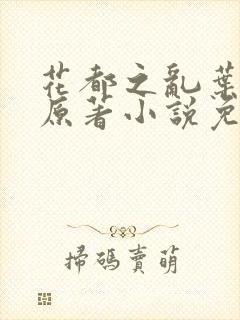 花都之亂葉
原著小說免
掃碼賣萌